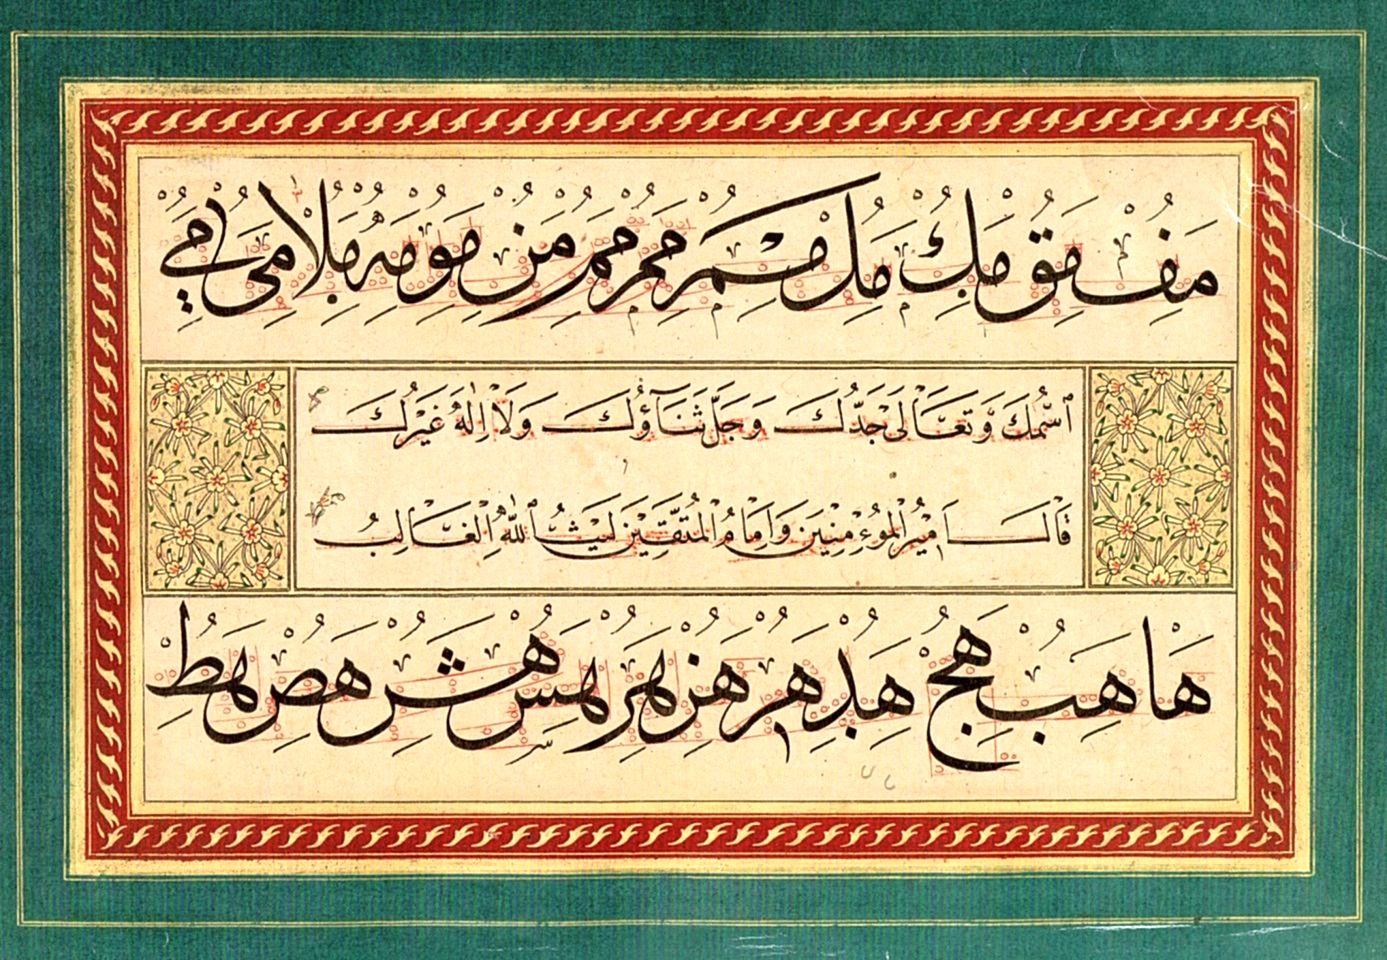 مف مق مك مل مم مم مر من مو مه ملا مى مي
اسمك وتعالى جدك وجل ثناؤك ولا اله غيرك
قال امير الموءمنين وامام المتقين ليث الله الغالب
ها هب هج هد هر هز هر هس هش هص هط